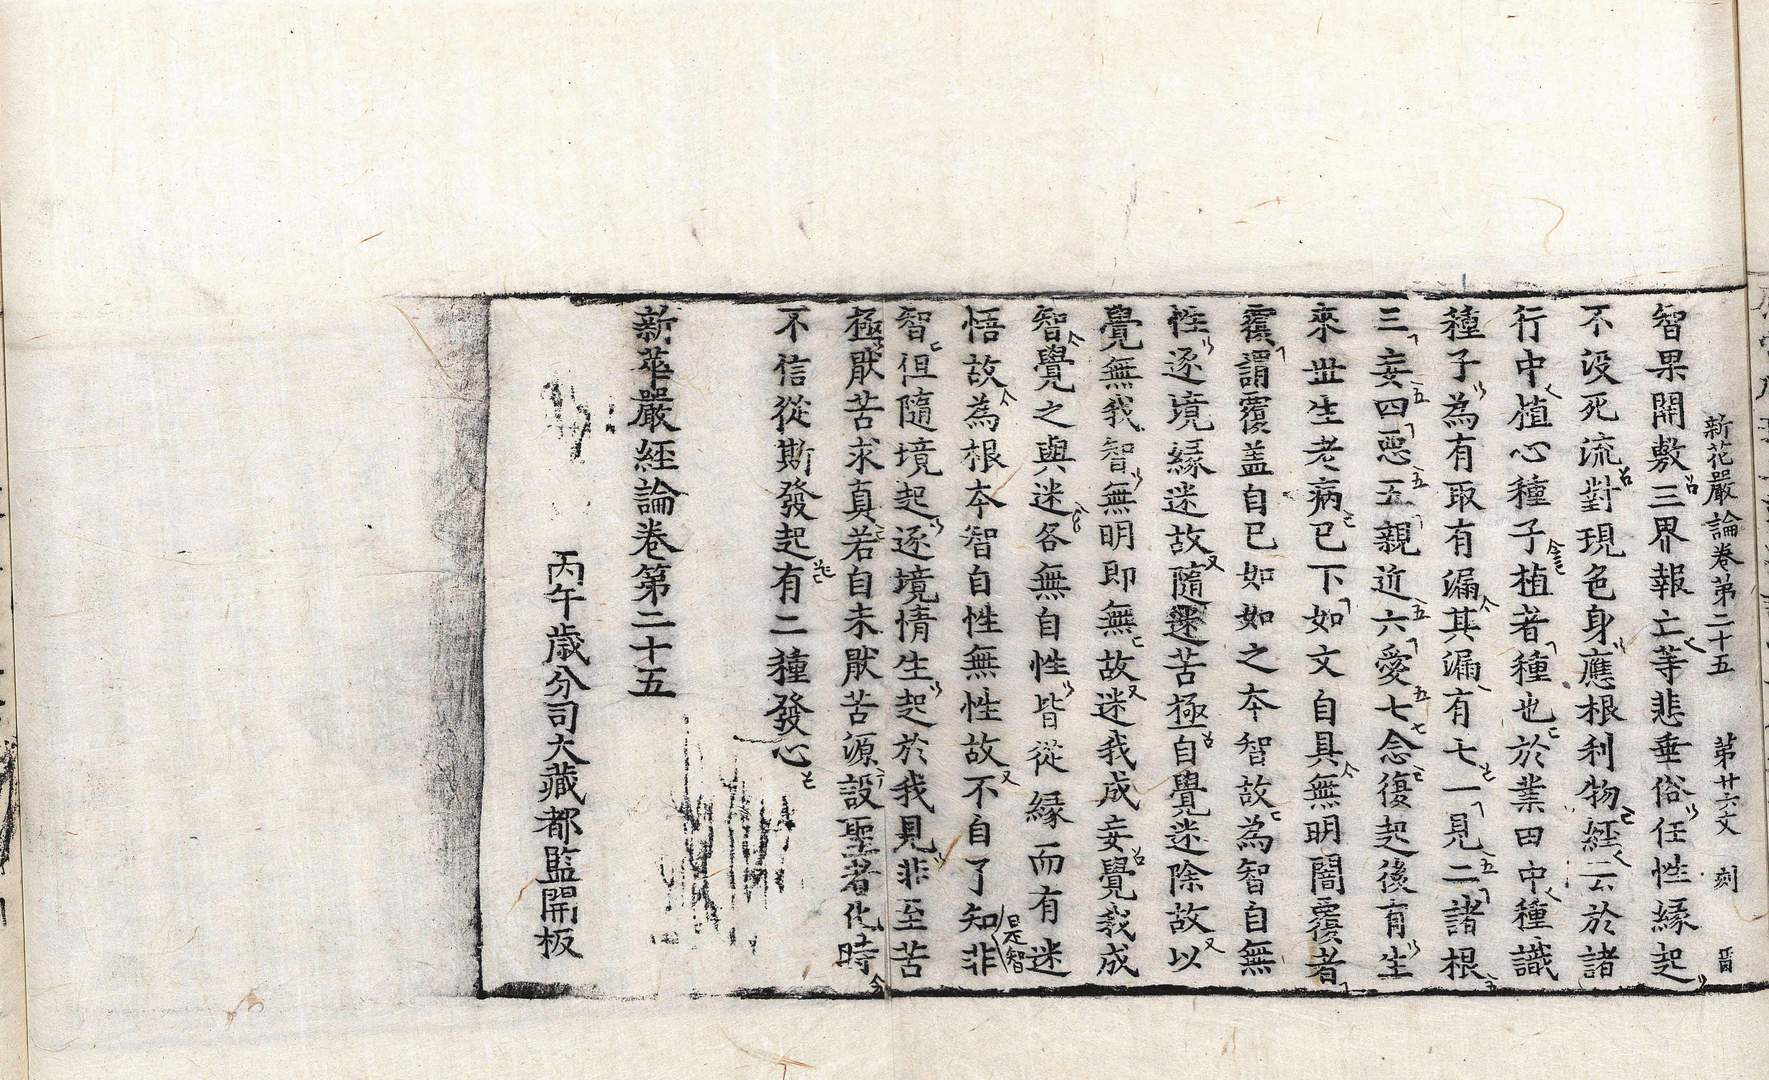 新花嚴論卷第二十五 第廿六文 刻 晋
智果開敷三界報亡等悲垂俗任性緣起
不没死流對現色身應根利物經云於諸
行中植心種子植者種也於業田中種識
種子為有取有漏其漏有七一見二諸根
三妄四惡五親近六愛七念復起後有生
來世生老病已下如文自具無明闇覆者
覆謂覆盖自已如如之本智故為智自無
性逐境緣迷故隨迷苦極自覺迷除故以
覺無我智無明即無故迷我成妄覺我成
智覺之與迷各無自性皆從緣而有迷
悟故為根本智自性無性故不自了知非
是智
智但隨境起逐境情生起於我見非至苦
極厭苦求真若自未厭苦源設聖者化時
不信從斯發起有二種發心
新華嚴經論卷第二十五
丙午歲分司大藏都監開板